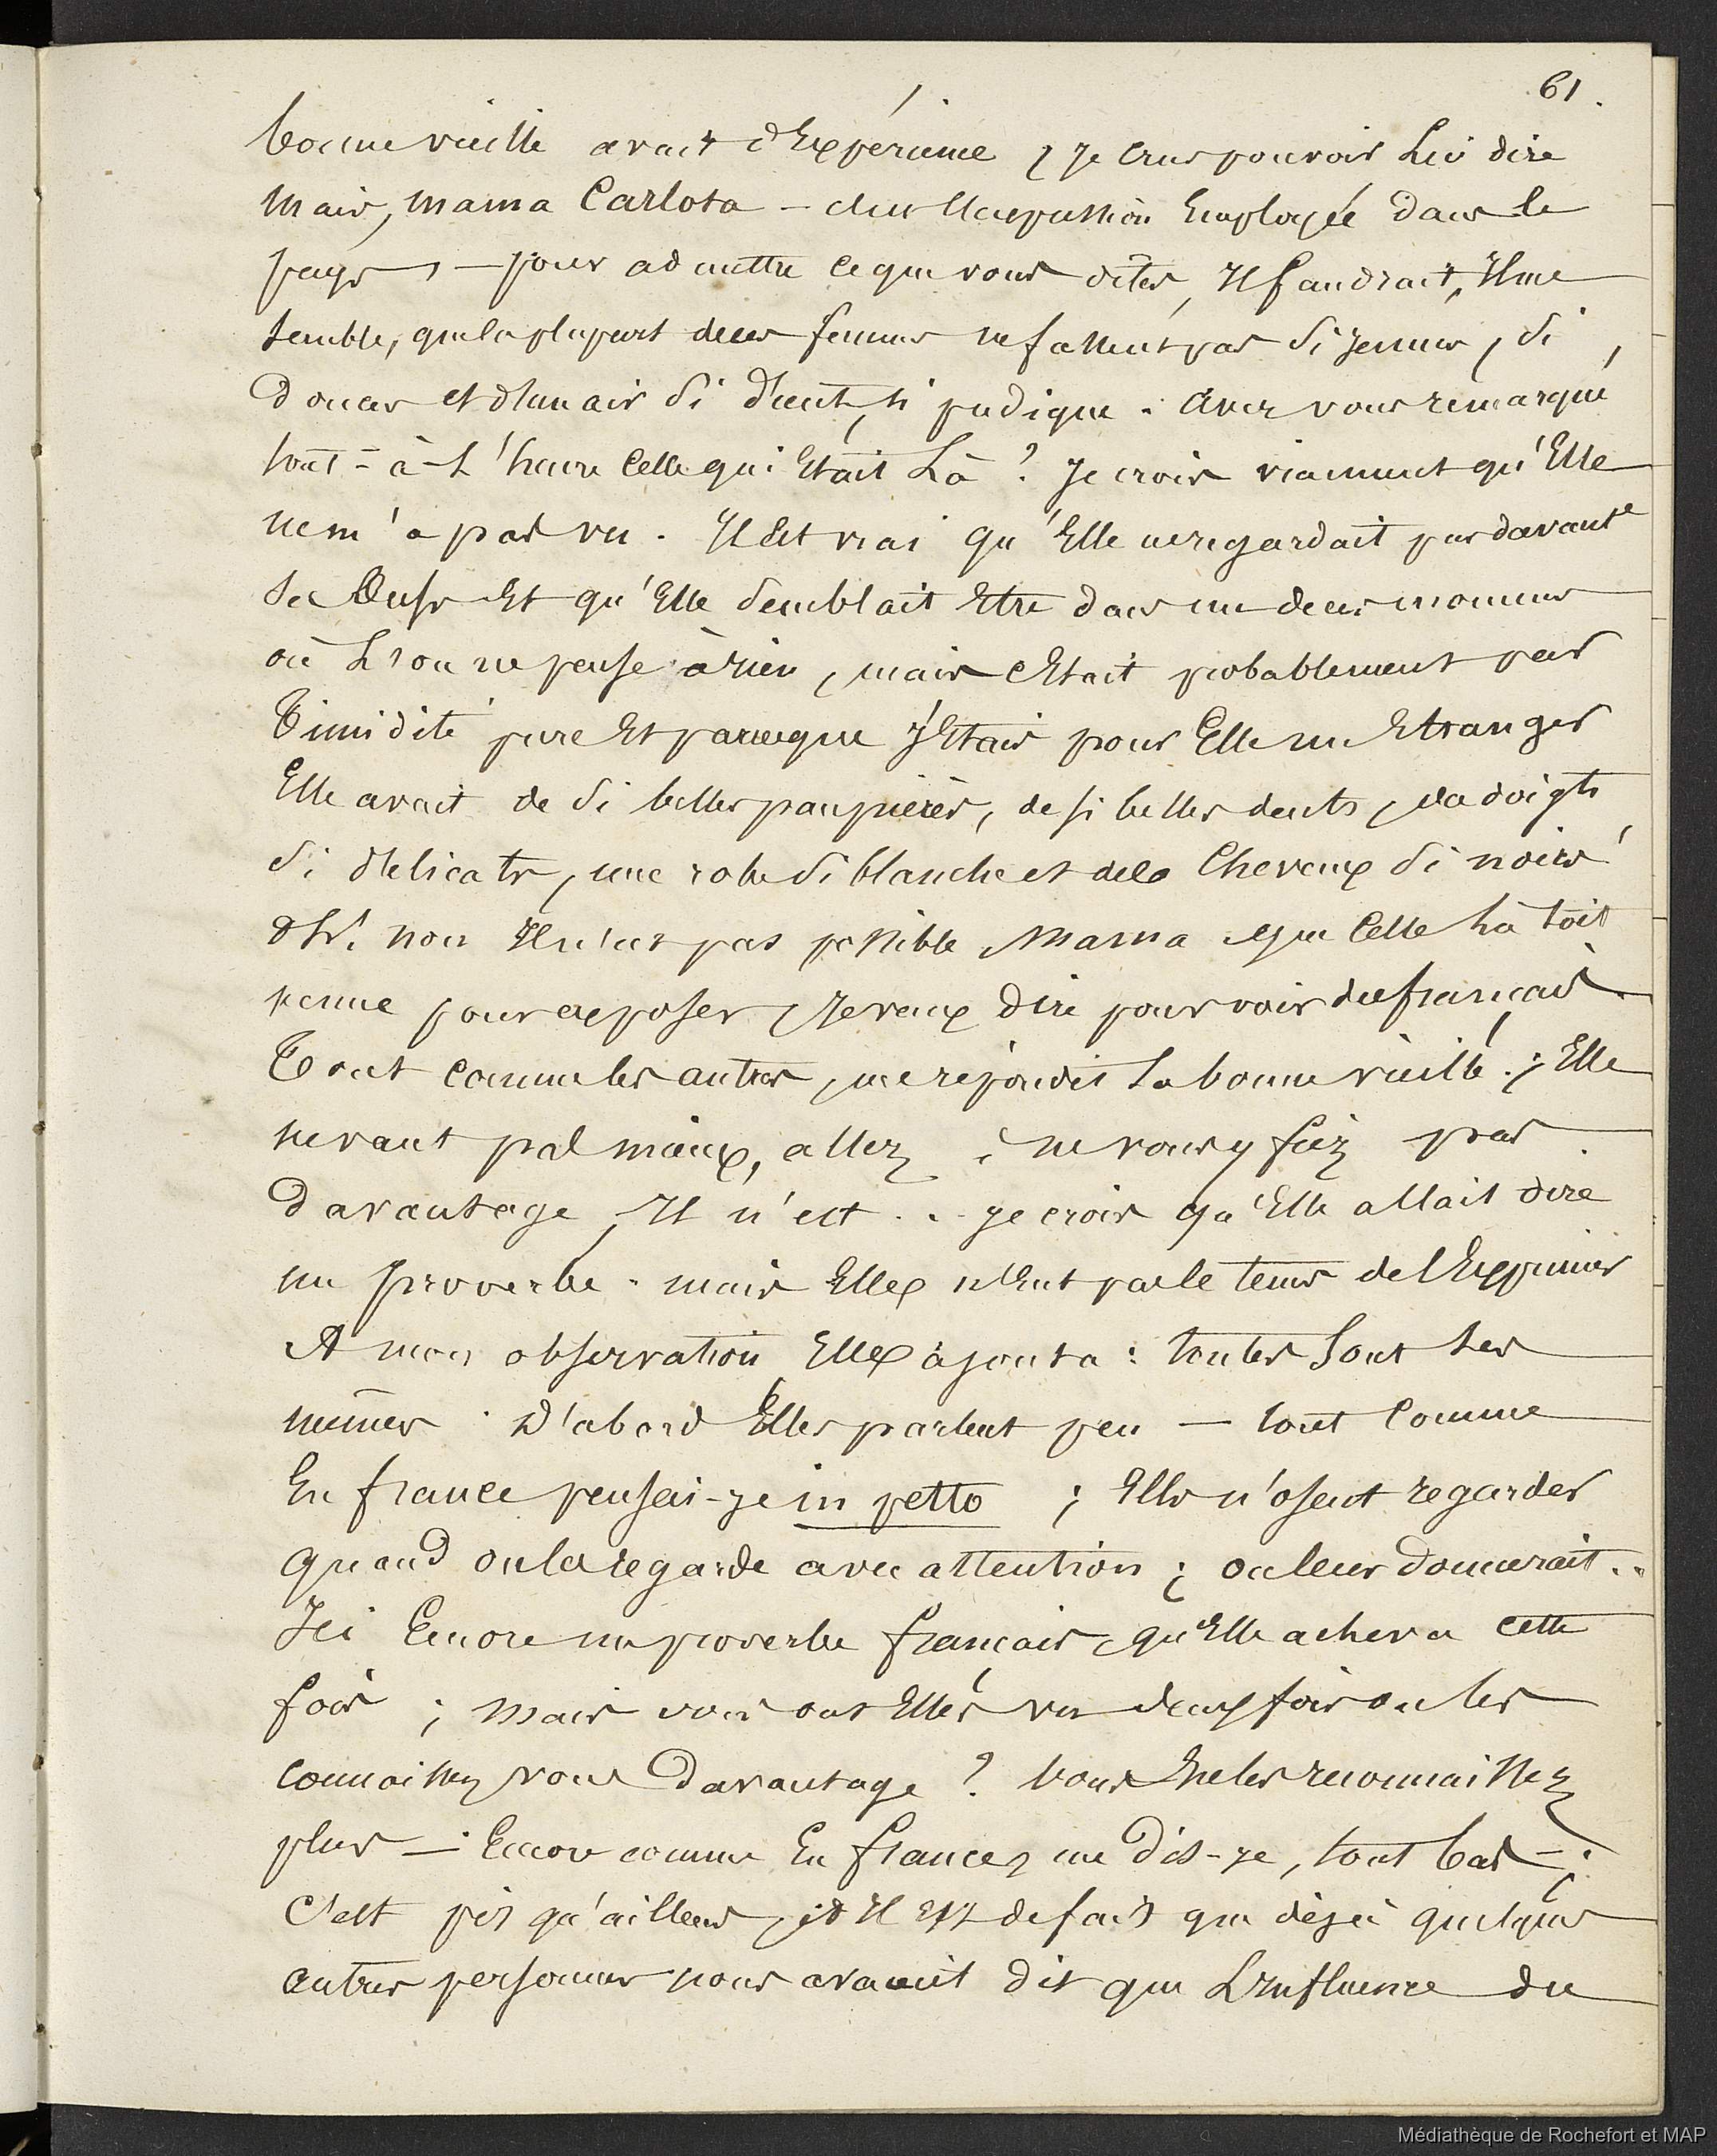 61.
bonne vieille avait d'Expérience, je crus pouvoir Lui dire
mais, mama Carlota – c'est L'expression Employée dans le
pays, – pour admettre ce que vous dites, Il faudrait, Il me
semble, que la plupart de ces femmes ne fussent pas si jeunes, si
douces et d'un air si décent, si pudique. Avez vous remarqué
tout-à-L'heure Celle qui Etait Là? Je crois vraiment qu'Elle
ne m'a pas vu. Il Est vrai qu'Elle ne regardait pas davante
Et qu'Elle semblait Etre dans un de ces momens
où L'on ne pense à rien, mais c'Etait probablement par
Timidité pure Et parceque j'Etais pour Elle un Etranger
Elle avait de si belles paupières, de si belles dents, des doigts
si délicats, une robe si blanche et des Cheveux si noirs!
oh! non Il n'est pas possible Mama que Celle Là soit
venue pour exposer, Je veux dire pour voir des français.
Tout comme les autres, me répondit La bonne vieille; Elle
ne vaut pas mieux, allez; ne vous y fiez pas
Davantage, Il n'est... je crois qu'Elle allait dire
un proverbe. mais Elle n'Eut pas le tems de l'Exprimer
A mon observation Elle ajouta: toutes sont Les
mêmes. D'abord Elles parlent peu — tout Comme
En france pensai-je in petto; Elles n'osent regarder
quand on les regarde avec attention; on leur donnerait..
Ici Encore un proverbe français, qu'Elle acheva cette
fois; Mais vous ont Elles vu deux fois ou les
connaissez vous Davantage? vous ne les reconnaissez
plus — Encore comme En france, me dis-je, tout bas –;
C'est pis qu'ailleurs, et Il Est de fait que déjà quelques
autres personnes nous avaient dit que L'Influence du
Médiathèque de Rochefort et MAP